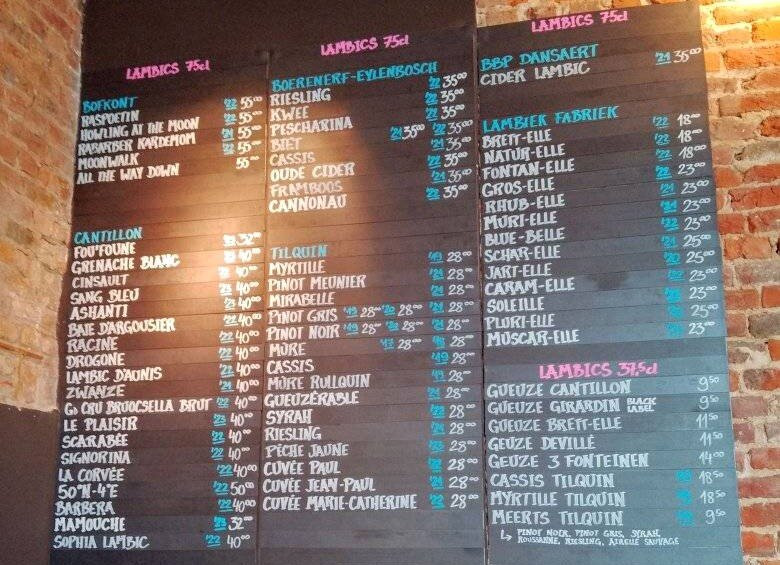 LAMBICS 75cl
BOFKONT
RASPOETIN '22 55⁰⁰
HOWLING AT THE MOON '22 55⁰⁰
RABARBER KARDEMOM '21 55⁰⁰
MOONWALK '22 55⁰⁰
ALL THE WAY DOWN 55⁰⁰
CANTILLON
FOU'FOUNE 32⁰⁰
GRENACHE BLANC 40⁰⁰
CINSAULT 40⁰⁰
SANG BLEU 40⁰⁰
ASHANTI 40⁰⁰
BAIE D'ARGOUSIER '22 40⁰⁰
RACINE '22 40⁰⁰
DROGONE '22 40⁰⁰
LAMBIC D'AUNIS '22 40⁰⁰
ZWANZE '21 40⁰⁰
Gᴅ CRU BRUOCSELLA BRUT '22 40⁰⁰
LE PLAISIR 40⁰⁰
SCARABÉE '22 40⁰⁰
SIGNORINA '22 40⁰⁰
LA CORVÉE '22 40⁰⁰
50°N-4°E '22 50⁰⁰
BARBERA '22 40⁰⁰
MAMOUCHE 32⁰⁰
SOPHIA LAMBIC '22 40⁰⁰
LAMBICS 75cl
BOERENERF-EYLENBOSCH
RIESLING '22 35⁰⁰
KWEE '22 35⁰⁰
PESCHARINA '22 35⁰⁰
BIET '21 35⁰⁰ '22 35⁰⁰
CASSIS '21 35⁰⁰
OUDE CIDER '22 35⁰⁰
FRAMBOOS '21 35⁰⁰
CANNONAU '22 35⁰⁰
TILQUIN
MYRTILLE '19 28⁰⁰
PINOT MEUNIER '21 28⁰⁰
MIRABELLE '21 28⁰⁰
PINOT GRIS '19 28⁰⁰ '20 28⁰⁰ '21 28⁰⁰
PINOT NOIR '19 28⁰⁰ 28⁰⁰ '21 28⁰⁰
MÛRE 28⁰⁰ 28⁰⁰
CASSIS '19 28⁰⁰
MÛRE RULLQUIN '19 28⁰⁰
GUEUZÉRABLE '21 28⁰⁰
SYRAH '22 28⁰⁰
RIESLING '21 28⁰⁰
PÊCHE JAUNE '22 28⁰⁰
CUVÉE PAUL '22 28⁰⁰
CUVÉE JEAN-PAUL '21 28⁰⁰
CUVÉE MARIE-CATHERINE '22 28⁰⁰
LAMBICS 75cl
BBP DANSAERT
CIDER LAMBIC '21 35⁰⁰
LAMBIEK FABRIEK
BRETT-ELLE '22 18⁰⁰
NATUR-ELLE '22 18⁰⁰
FONTAN-ELLE '22 18⁰⁰
GROS-ELLE '22 23⁰⁰
RHUB-ELLE '21 23⁰⁰
MURI-ELLE '21 23⁰⁰
BLUE-BELLE '22 23⁰⁰
SCHAR-ELLE '21 25⁰⁰
JART-ELLE '20 25⁰⁰
CARAM-ELLE '22 23⁰⁰
SOLEILLE 23⁰⁰
PLURI-ELLE 25⁰⁰
MUSCAR-ELLE '21 23⁰⁰
LAMBICS 37,5cl
GUEUZE CANTILLON 9⁵⁰
GUEUZE GIRARDIN BLACK LABEL 9⁵⁰
GUEUZE BRETT-ELLE 11⁵⁰
GEUZE DEVILLÉ 11⁵⁰
GEUZE 3 FONTEINEN 14⁰⁰
CASSIS TILQUIN 18⁵⁰
MYRTILLE TILQUIN 18⁵⁰
MEERTS TILQUIN 9⁵⁰
↳ PINOT NOIR, PINOT GRIS, SYRAH,
ROUSSANNE, RIESLING, AIRELLE SAUVAGE